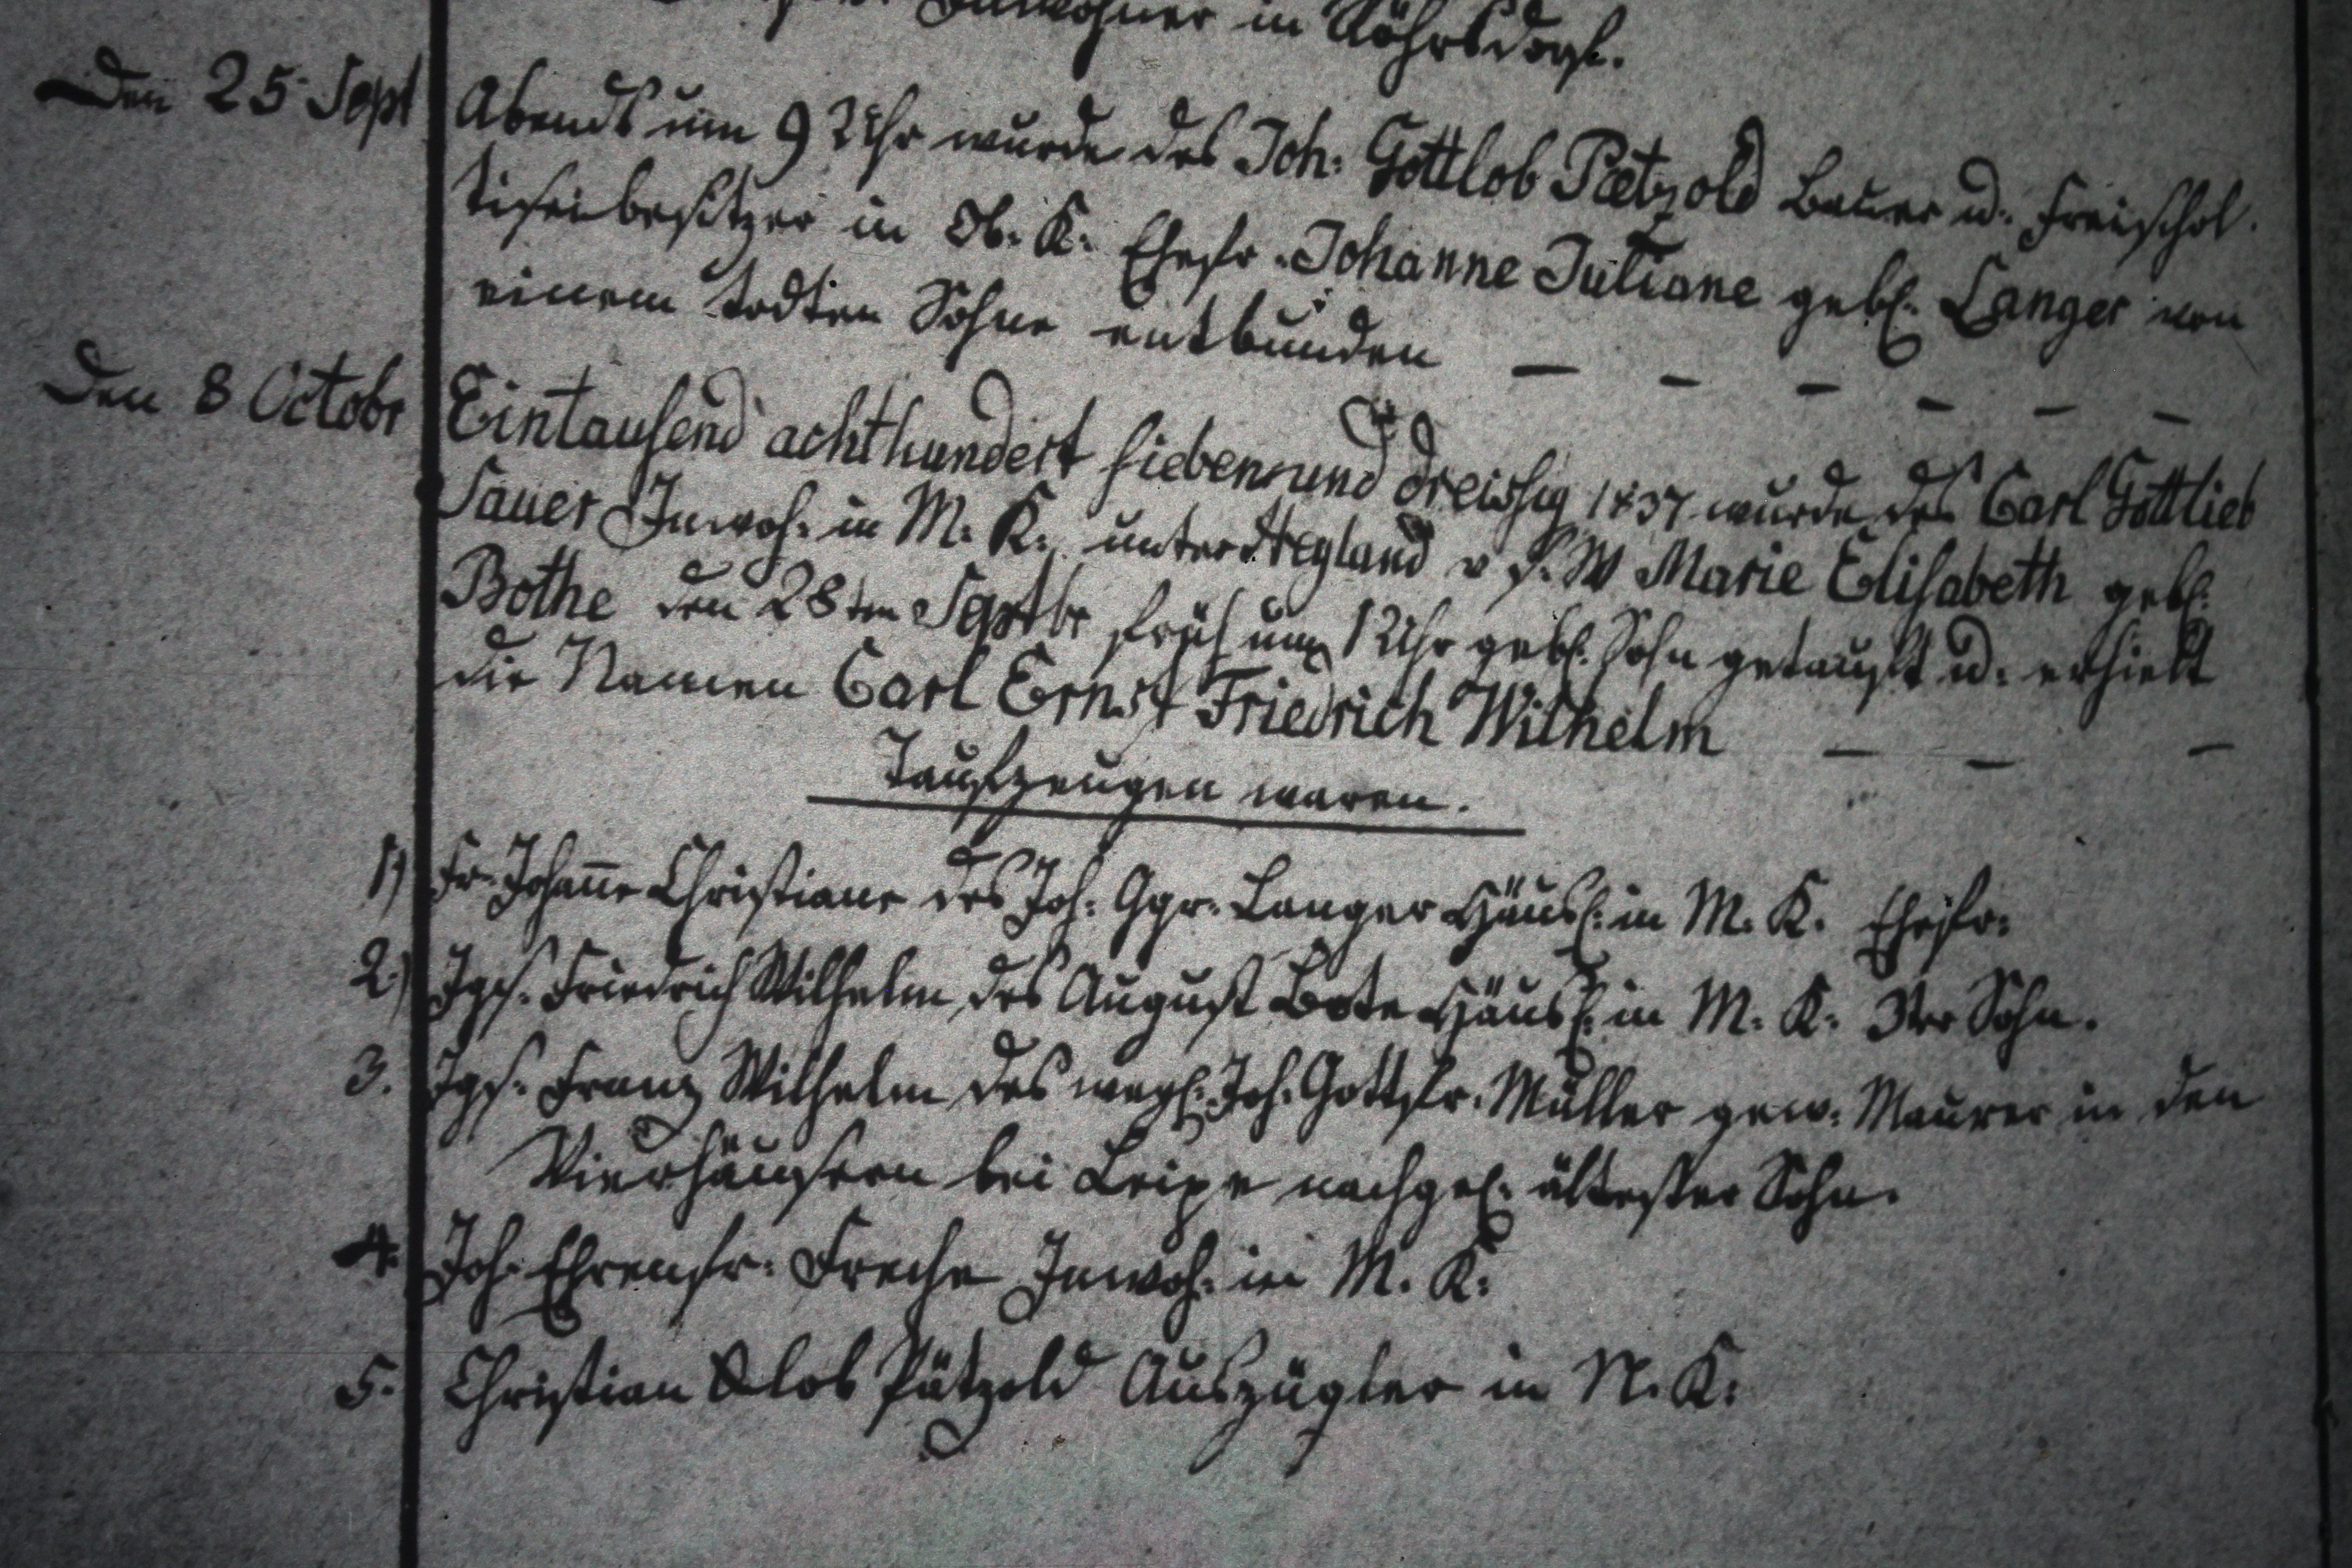 Inwohner in Röhrsdorf.
Den 25 Sept Abends um 9 Uhr wurde des Joh: Gottlob Pætzold Bauer u. Freischol-
tiseibesitzer in Ob. K. Ehefr. Johanne Juliane gebl. Langer von
einem todten Sohne entbunden — — — — — —
Den 8 Octobr Eintausend achthundert sieben und dreissig 1837 wurde des Carl Gottlieb
Sauer Inwoh: in M. K. unter v. s. W Marie Elisabeth gebl.
Bothe den 28ten Septbr früh um 1 Uhr gebl. Sohn getauft u. erhielt
die Namen Carl Ernst Friedrich Wilhelm — — —
Taufzeugen waren.
1) Fr. Johan̄e Christiane des Joh: Ggr. Langer Häusl. in M. K. Ehefr:
2.) Jgs. Friedrich Wilhelm des August Bote Häusl. in M. K. 3ter Sohn.
3. Jgs. Franz Wilhelm des weyl. Joh. Gottfr. Müller gew: Maurer in den
Vierhäusern bei Leipe nachgel. ältester Sohn.
4. Joh. Ehrenfr: Freche Inwoh: in M. K:
5. Christian Glob Pätzold Auszügler in N. K: